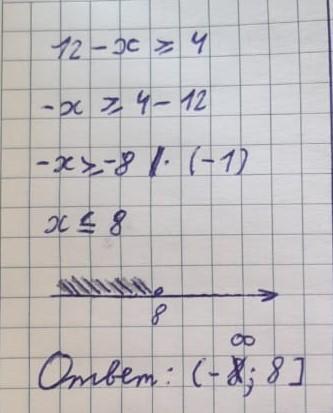 12 - x ≥ 4
-x ≥ 4 - 12
-x ≥ -8 | · (-1)
x ≤ 8
8
Ответ: (-∞; 8]